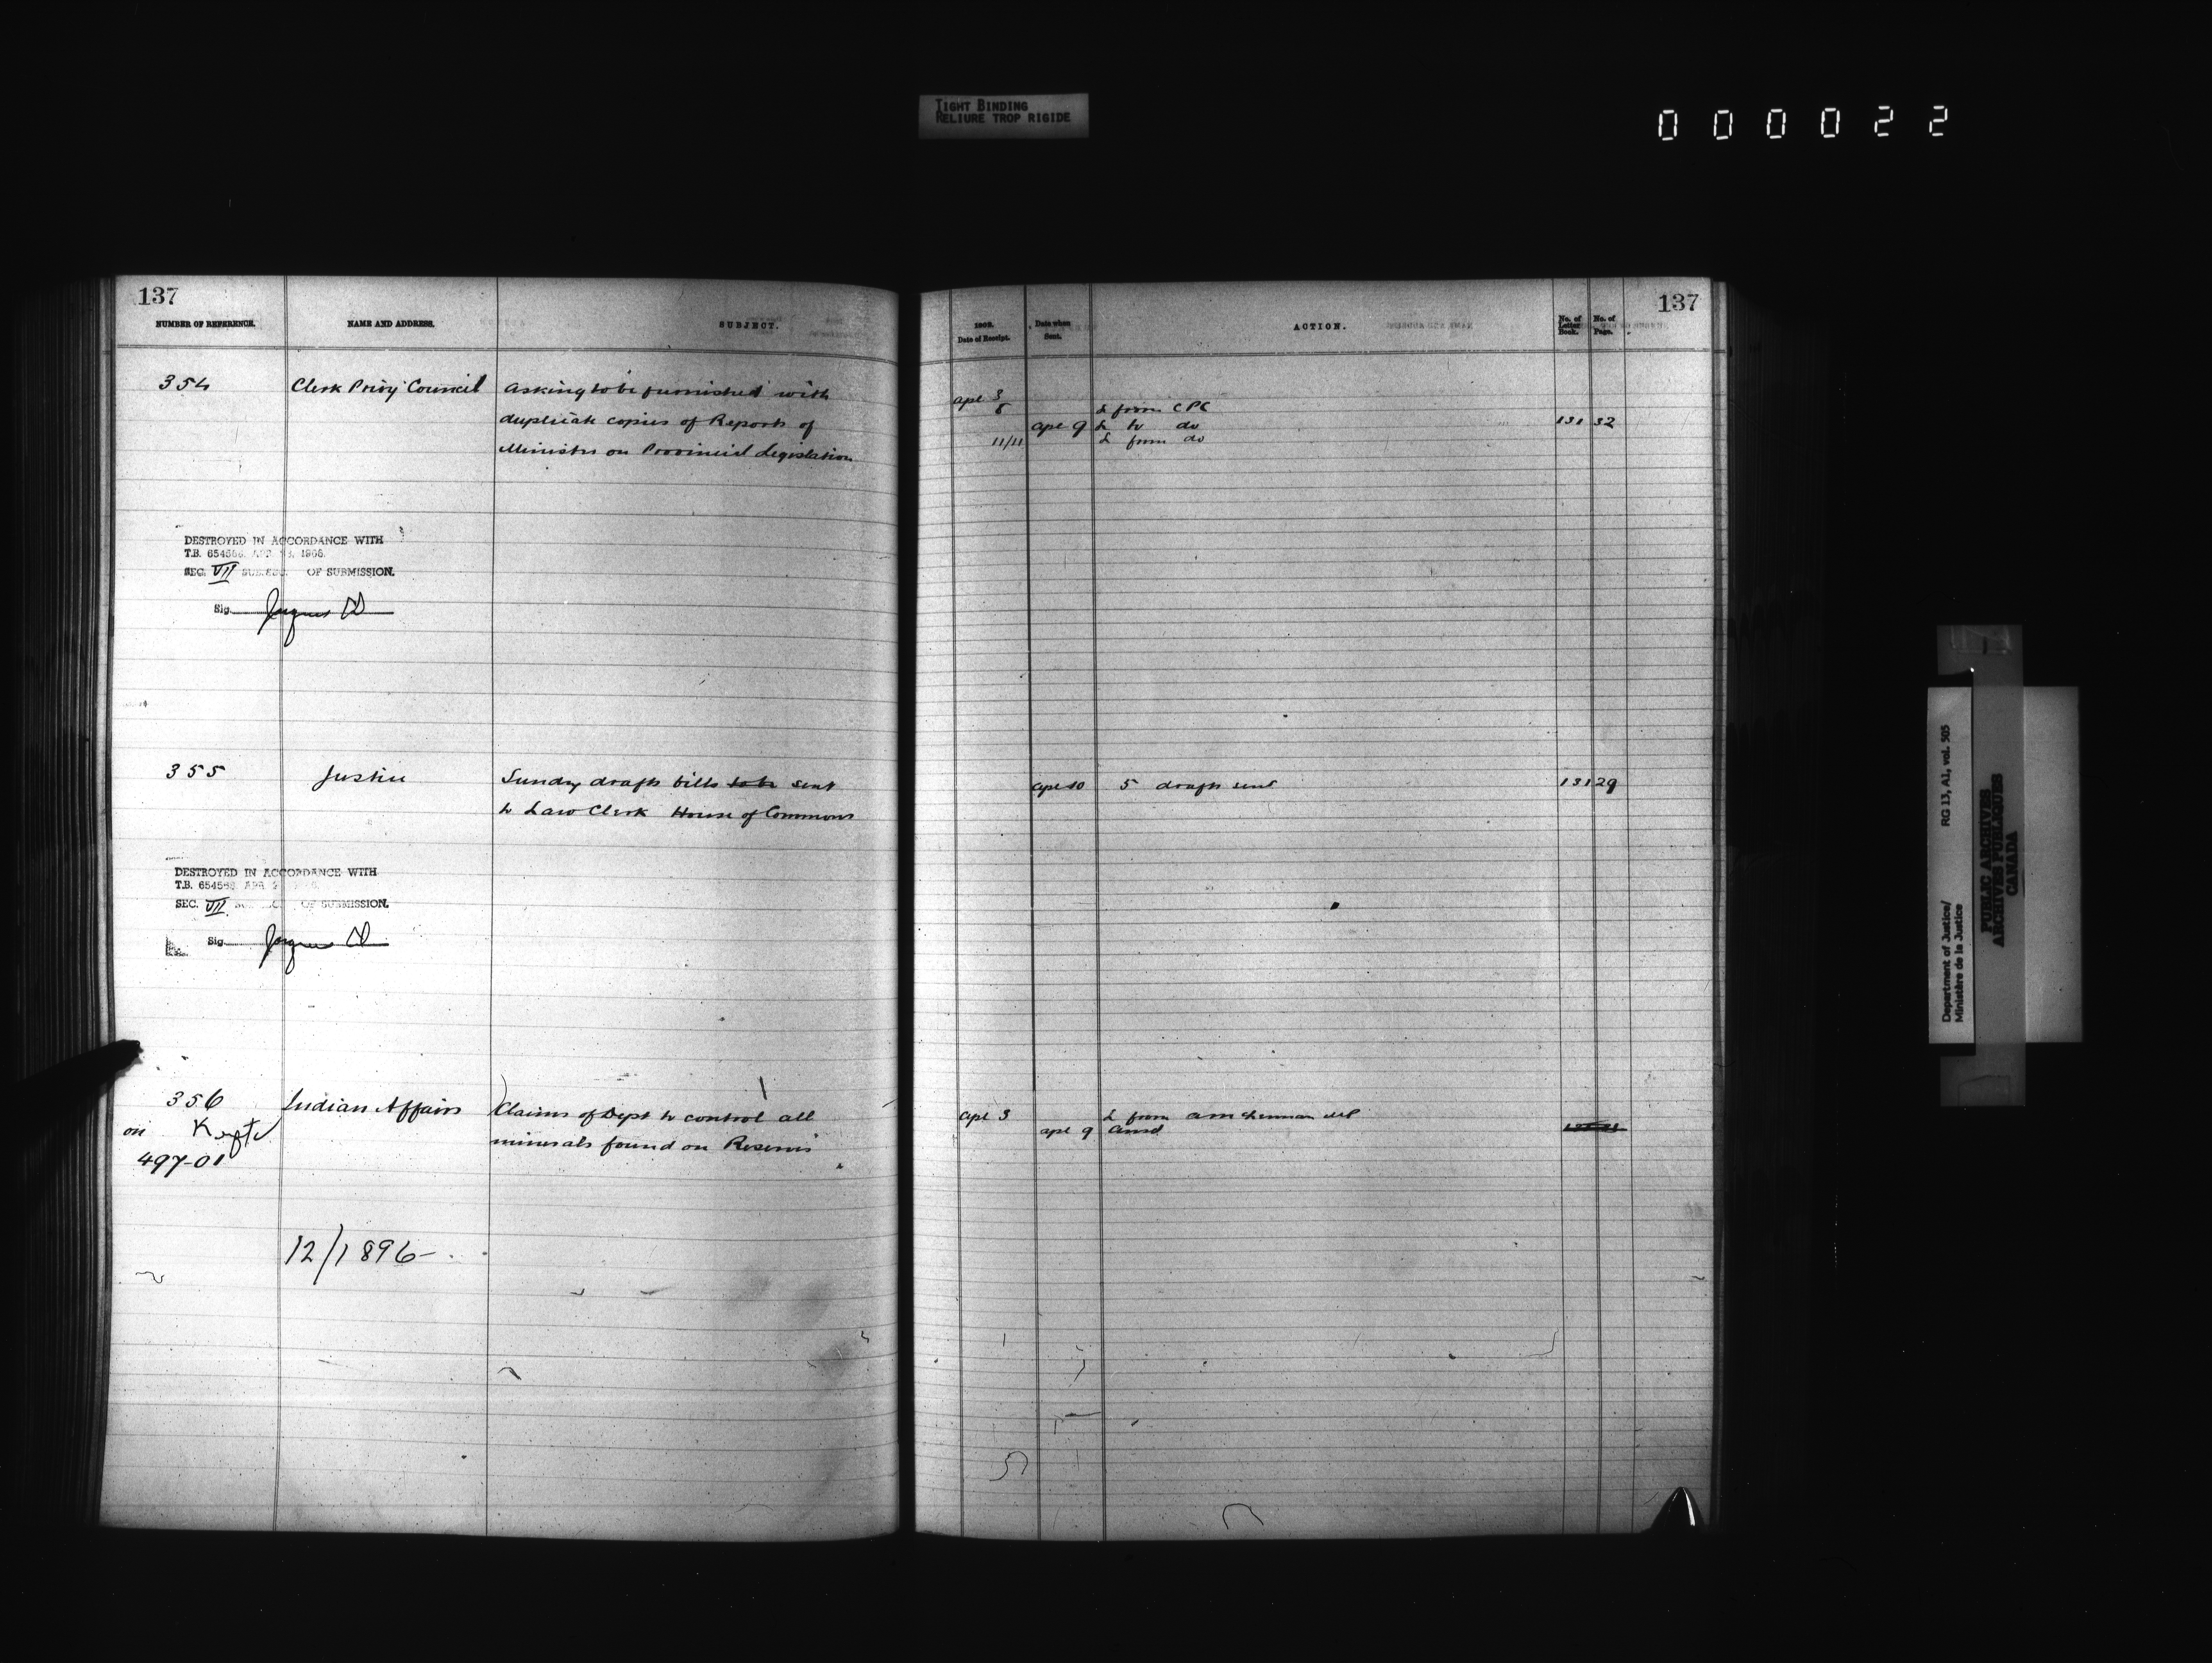 TIGHT BINDING
RELIURE TROP RIGIDE
000022
137
NUMBER OF REFERENCE.
NAME AND ADDRESS.
SUBJECT.
354
Clerk Privy Council
Asking to be furnished with
duplicate copies of Reports of
Minister on Provincial Legislation
DESTROYED IN ACCORDANCE WITH
T.B. 654566 APR 1966
SEC. VII SUB. SEC. OF SUBMISSION.
Sig.
355
Justice
Sundry draft bills sent
to Law Clerk House of Commons
DESTROYED IN ACCORDANCE WITH
T.B. 654566 APR
SEC. VII OF SUBMISSION.
Sig.
356
Indian Affairs
Claims of Dept to control all
minerals found on Reserves
on
497-01
12/1896-
137
Date of Receipt.
Date when
Sent.
ACTION.
No. of
Letter
Book.
No. of
Page.
Apl 3
8
L from CPC
Apl 9
L to do
131
32
11/11
L from do
Apl 10
5 drafts sent
131
29
Apl 3
L from
Apl 9
Department of Justice/
Ministère de la Justice
RG 13, A1, vol. 505
PUBLIC ARCHIVES
ARCHIVES PUBLIQUES
CANADA